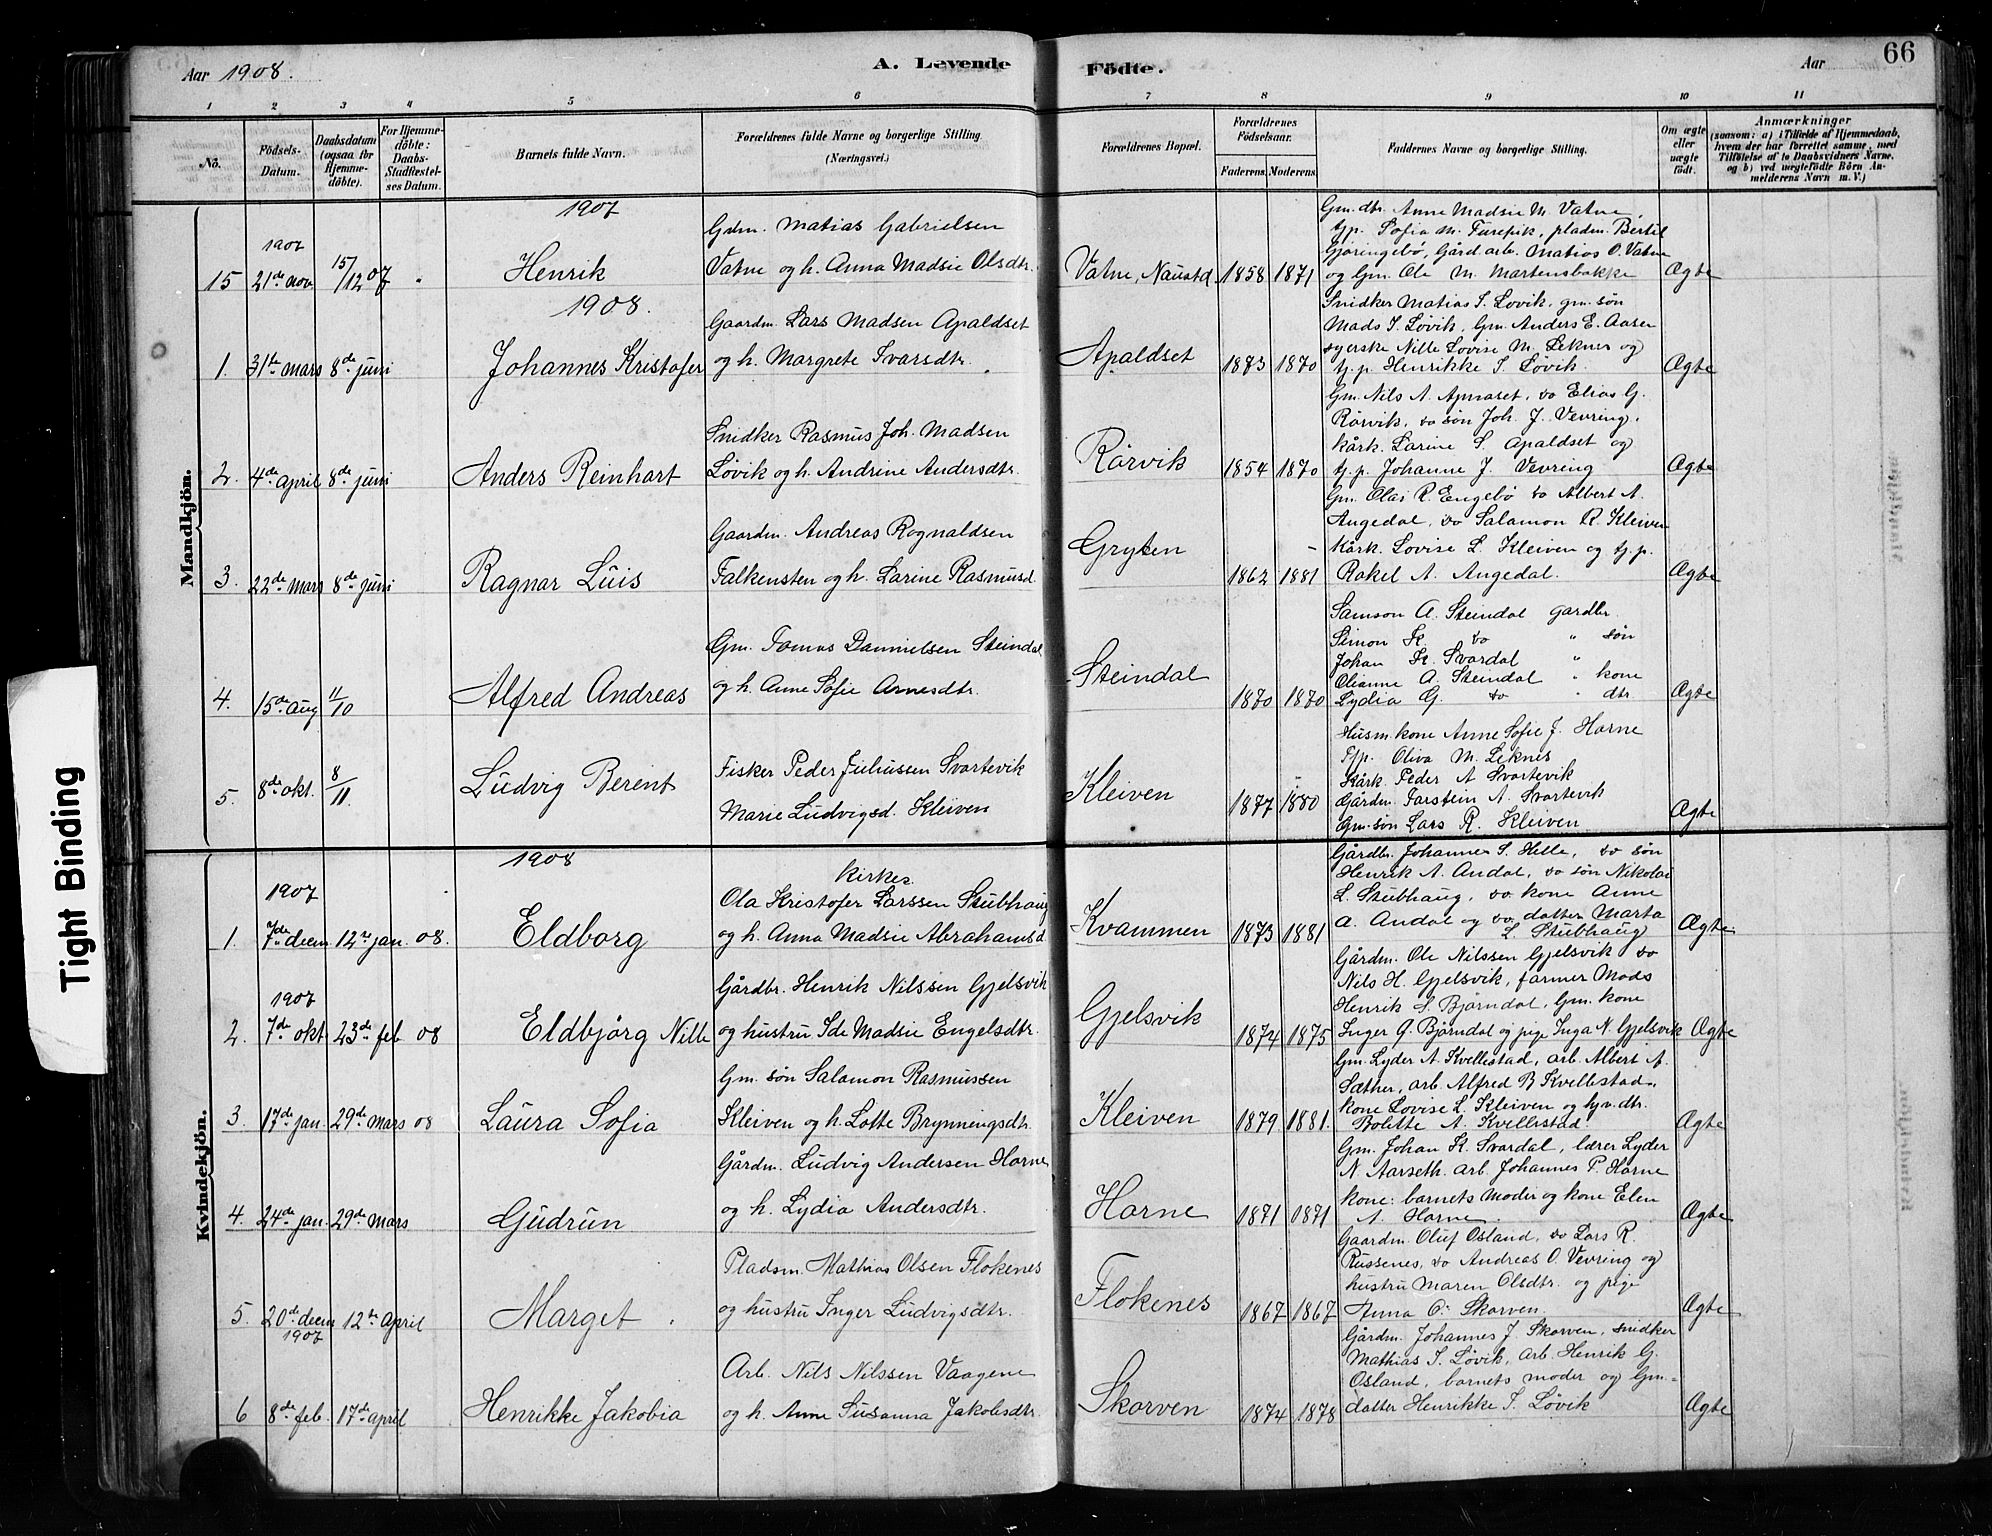 Aar 1908.
A. Levende
Födte.
Aar
66
1 2 3 4 5 6 7 8 9 10 11
Nö.
Födsels-Datum.
Daabsdatum (ogsaa for Hjemme-döbte).
For Hjemme-döbte: Daabs-Stadfæstel-ses Datum.
Barnets fulde Navn.
Forældrenes fulde Navne og borgerlige Stilling. (Næringsvei.)
Forældrenes Bopæl.
Forældrenes Födselsaar.
Faderens. Moderens.
Faddernes Navne og borgerlige Stilling.
Om ægte eller uægte födt.
Anmærkninger
(saasom: a) i Tilfælde af Hjemmedaab, hvem der har forrettet samme, med Tilföielse af to Daabsvidners Navne, og b) ved uægtefödte Börn Anmelderens Navn m. V.)
Mandkjön.
1907
15 1907 21de nov. 15/12 07 "
Henrik
Gdm. Matias Gabrielsen
Vatne og h. Anna Madsie Olsdtr.
Vatne, Naustd. 1858 1871
Gm. dtr. Anne Madsie M. Vatne,
tjp. Sofia M. Furevik, pladm. Bertil
Gjøringebø, Gård arb. Matios O. Vatne
og Gm. Ole M. Martensbakke
Ægte
1908.
1. 31te mars 8de juni
Johannes Kristofer
Gaardm. Lars Madsen Apaldset
og h. Margrete Ivarsdtr.
Apaldset 1873 1870
Snidker Matias S. Løvik, gm. søn
Mads S. Løvik, Gm. Anders E. Aasen
syerske Nille Lovise M. Leknes og
tj.p. Henrikke S. Løvik.
Ægte
2. 4de april 8de juni
Anders Reinhart
Snidker Rasmus Joh. Madsen
Løvik og h. Andrine Andersdtr.
Rörvik 1854 1870
Gm. Nils A. Apalset, do Elias G.
Rörvik, do søn Joh. J. Vevring,
kårk. Larine S. Apaldset og
tj.p. Johanne J. Vevring
Ægte
3. 22de mars 8de juni
Ragnar Luis
Gaardm. Andreas Rognaldsen
Falkensten og h. Larine Rasmusd.
Gryten 1862 1881
Gm. Olai R. Engebø do Albert A.
Angedal, do Salamon R. Kleiven
Kårk. Lovise L. Kleiven og tj.p.
Rakel A. Angedal.
Ægte
4. 15de Aug 11/10
Alfred Andreas
Gm. Tomas Dannielsen Steindal
og h. Anne Sofie Arnesdtr.
Steindal 1870 1870
Samson A. Steindal gardbr.
Simon K. do " søn
Johan K. Svardal "
Olianne A. Steindal " kone
Lydia G. do " dtr.
Ægte
5. 8de okt. 8/11.
Ludvig Berent
Fisker Peder Juliussen Svartevik
Marie Ludvigsd. Kleiven
Kleiven 1877 1880
Husm. kone Anne Sofie J. Horne
Tjp. Oliva M. Leknes
Kårk. Peder A Svartevik
Gårdm. Torstein A. Svartevik
Gm. søn Lars R. Kleiven
Ægte
Kvindekjön.
1908
1. 1907 7de decm 12te jan. 08.
Eldborg
kirkes.
Ola Kristofer Larssen Stubhaug
og h. Anna Madsie Abrahamsd.
Kvammen 1873 1881
Gårdbr. Johannes S. Helle, do søn
Henrik A. Andal, do søn Nikolai
L. Stubhaug, do kone Anne
A. Andal og do datter Marta
L. Stubhaug
Ægte.
2. 1907 7de okt 23de feb 08
Eldbjörg Nille
Gårdbr. Henrik Nilssen Gjelsvik
og hustru Ide Madsie Engelsdtr.
Gjelsvik 1874 1875
Gårdm. Ole Nilssen Gjelsvik do
Nils H. Gjelsvik, farmer Mads
Henrik S. Bjørndal, Gm. kone
Inger G. Bjørndal og pige Inga N. Gjelsvik
Ægte
3. 17de jan. 29de mars 08
Laura Sofia
Gm. søn Salamon Rasmussen
Kleiven og h. Lotte Brynningsdtr.
Kleiven 1879 1881.
Gm. Lyder A. Kvellestad, arb. Albert A.
Sæther, arb. Alfred B Kvellestad,
kone Lovise L. Kleiven og hjv. dtr.
Bolette A. Kvellestad
Ægte
4. 24de jan. 29de mars
Gudrun
Gårdm. Ludvig Andersen Horne
og h. Lydia Andersdtr.
Horne 1871 1871
Gm. Johan K. Svardal, lærer Lyder
N. Aarseth. arb. Johannes P. Horne
kone: barnets moder og kone Elen
A. Horne.
Ægte
5. 20de decm 1907 12te april
Marget
Pladsm. Mathias Olsen Flokenes
og hustru Inger Ludvigsdtr.
Flokenes 1867 1867
Gaardm. Oluf Osland, do Lars R.
Russenes, do Andreas O. Vevring og
hustru Maren Olsdtr. og pige
Anna O. Skorven.
Ægte
6 8de feb. 17de april
Henrikke Jakobia
Arb. Nils Nilssen Vaagene
og h. Anne Susanna Jakobsdtr.
Skorven 1874 1878
Gårdm. Johannes J. Skorven, snidker
Mathias S. Løvik, arb. Henrik G.
Osland, barnets moder og Gm.-
datter Henrikke S. Løvik
Ægte
Tight Binding